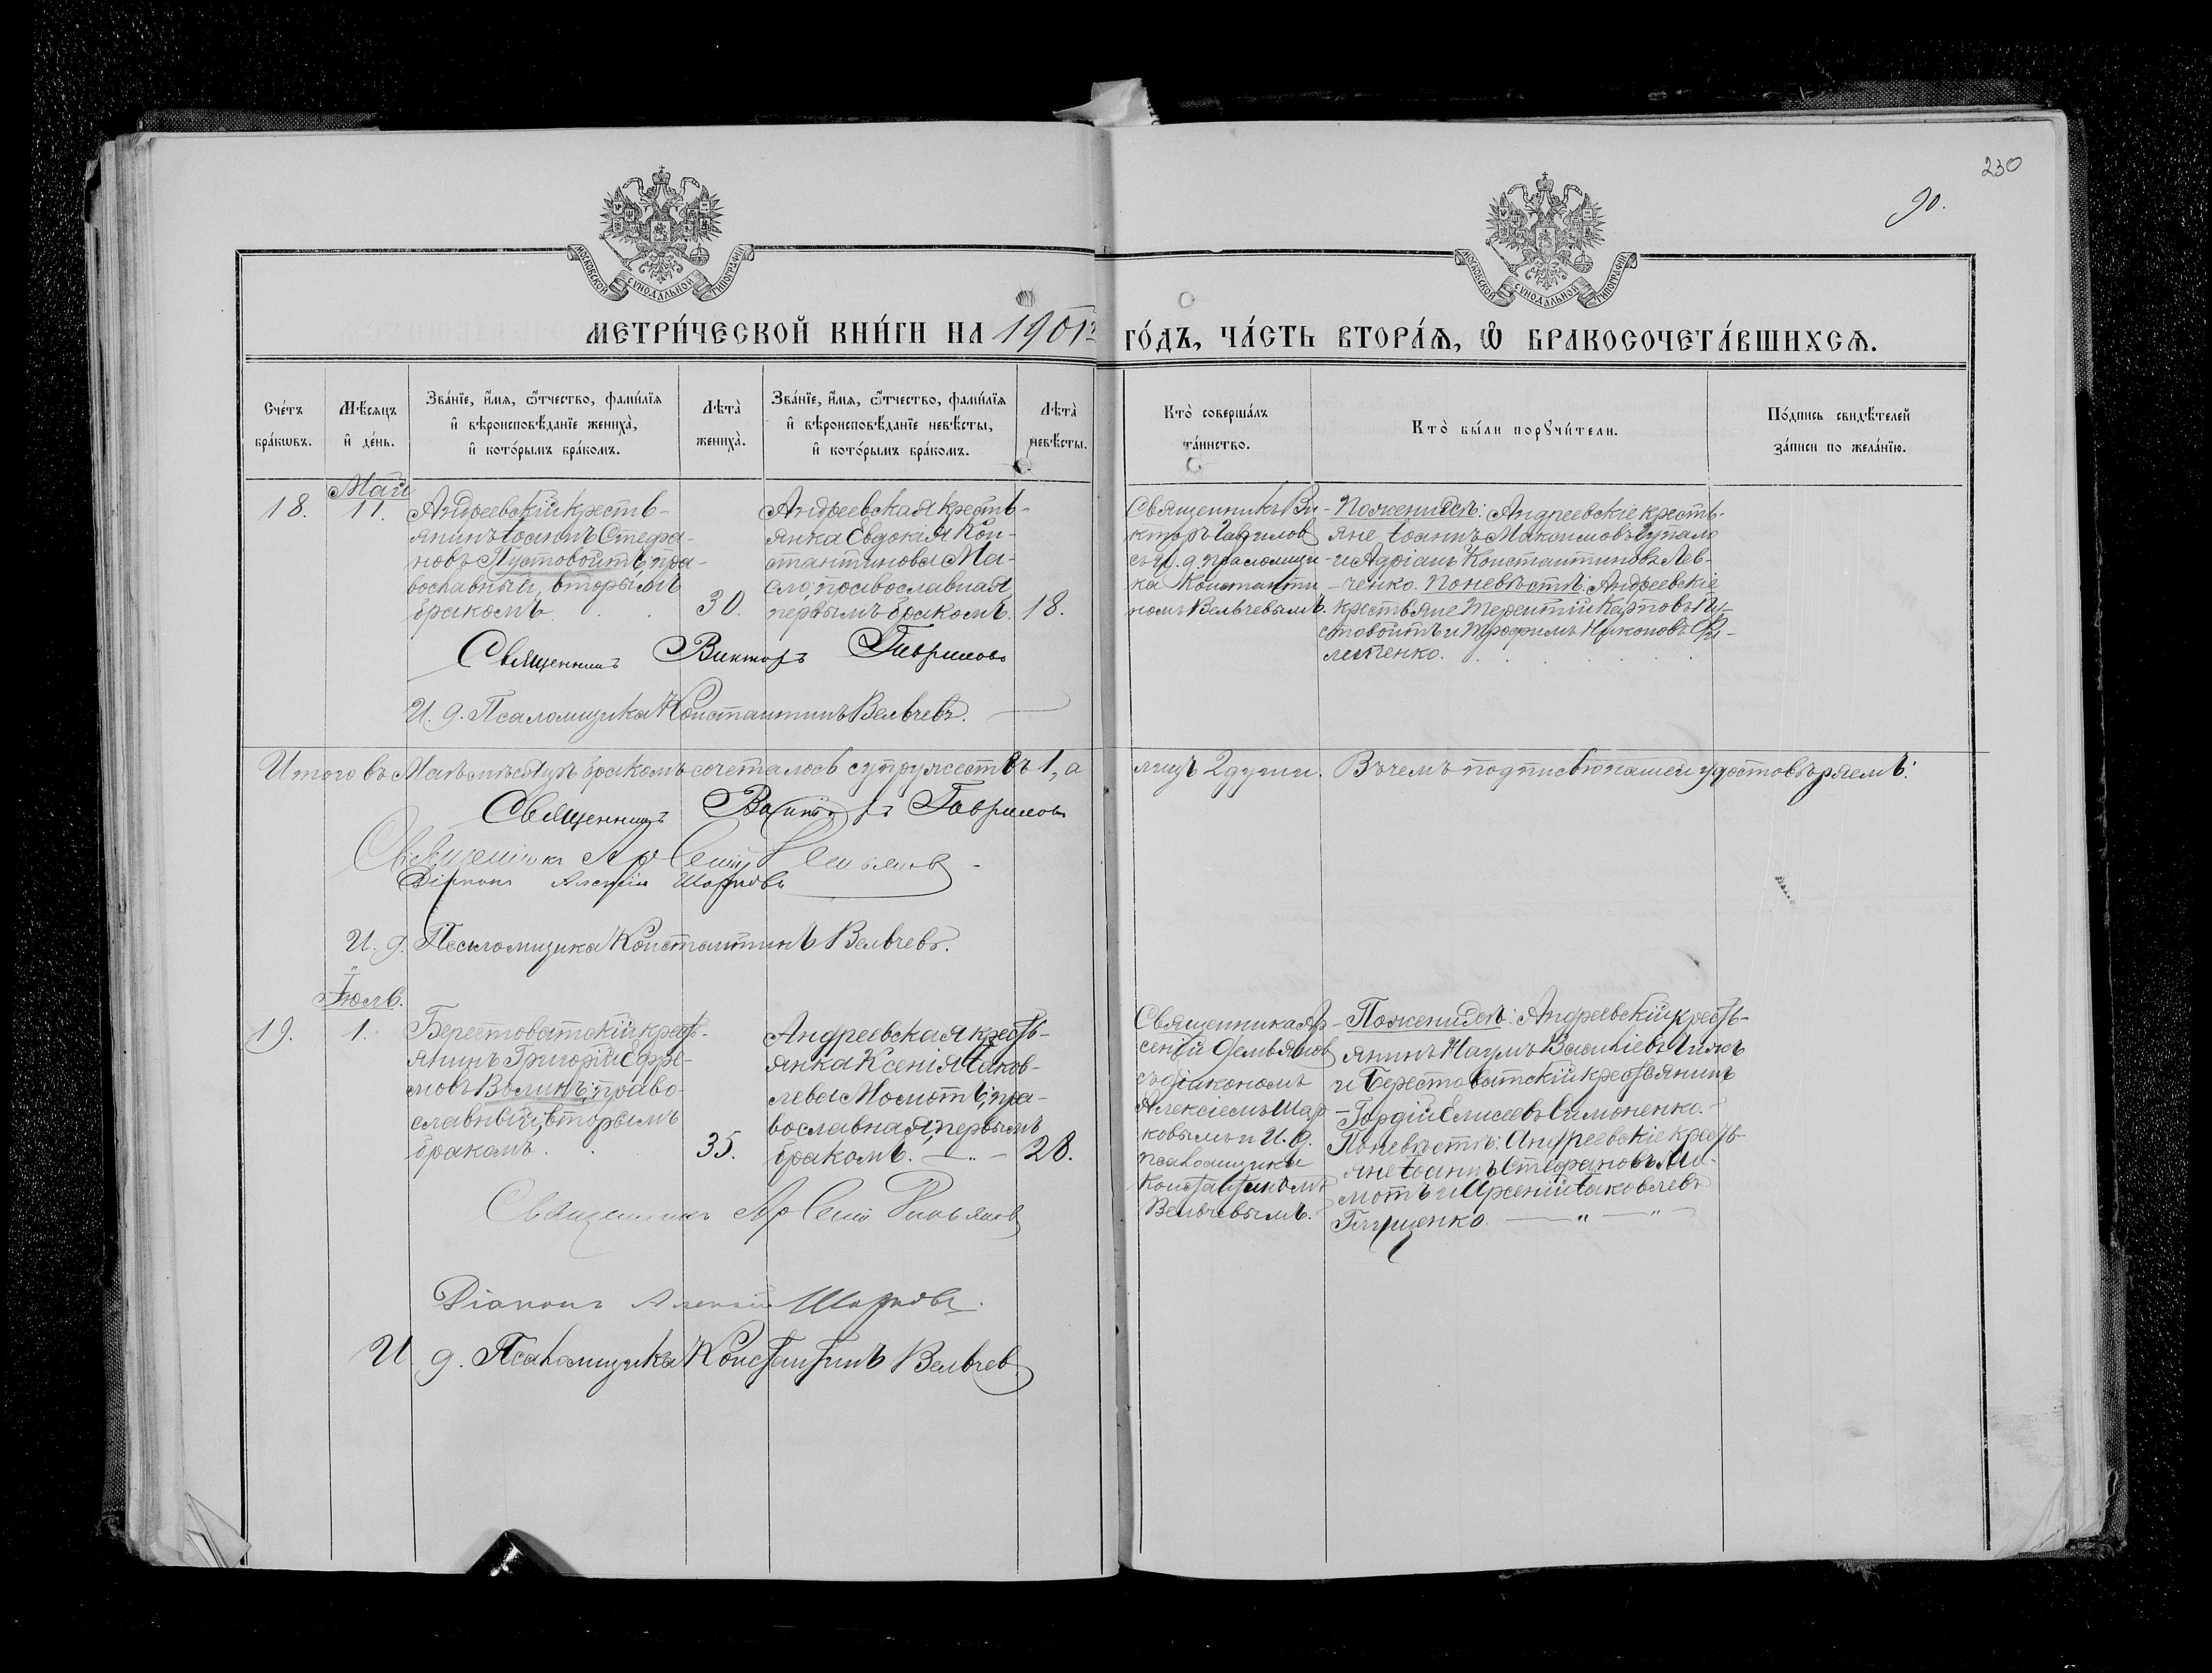 230
90.
МОСКОВСКОЙ СѴНОДАЛЬНОЙ ТИПОГРАФІИ
МОСКОВСКОЙ СѴНОДАЛЬНОЙ ТИПОГРАФІИ
МЕТРИ́ЧЕСКОЙ КНИ́ГИ НА 1901й ГО́ДЪ, ЧА́СТЬ ВТОРА́Ѧ, Ѽ БРАКОСОЧЕТА́ВШИХСѦ.
Сче́тъ бра́кѡвъ.
Мѣ́сѧцъ и҆ де́нь.
Зва́нїе, и҆́мѧ, ѻ҆́тчество, фами́лїѧ и҆ вѣроисповѣ́данїе жениха̀, и҆ кото́рымъ бра́комъ.
Лѣта̀ жениха̀.
Зва́нїе, и҆́мѧ, ѻ҆́тчество, фами́лїѧ и҆ вѣроисповѣ́данїе невѣ́сты, и҆ кото́рымъ бра́комъ.
Лѣта̀ невѣ́сты.
Кто̀ соверша́лъ та́инство.
Кто̀ бы́ли порꙋчи́тели.
По́дпись свидѣ́телей за́писи по жела́нїю.
Май
18.
11.
Андреевскій кресть-
янинъ Іоаннъ Стефа-
новъ Пустовойтъ, пра-
вославный, вторымъ
бракомъ.
30.
Андреевская кресть-
янка Евдокія Кон-
стантинова
православная,
первымъ бракомъ.
18.
Священникъ Ви-
кторъ Гаврилов
съ и. д. псаломщи-
ка Константи-
номъ Вельчевымъ.
По женихѣ: Андреевскіе кресть-
яне Іоаннъ Максимовъ
и Адріанъ Константиновъ Лев-
ченко. По невѣстѣ: Андреевскіе
крестьяне Терентій Карповъ Пу-
стовойтъ и Трофимъ Никоновъ Фи-
липенко.
Священникъ Викторъ Гавриловъ
И. д. Псаломщика Константинъ Вельчевъ.
Итого въ Маѣ мѣсяцѣ бракомъ сочеталось супружествъ 1, а лицъ 2 души. Въ чемъ подписью нашей удостовѣряемъ:
Священникъ Викторъ Гавриловъ
Священникъ Арсеній Демьянов
Діаконъ Алексій Шарковъ
И. д. Псаломщика Константинъ Вельчевъ.
Іюль.
19.
1.
Берестоватскій кресть-
янинъ Григорій Ефре-
мовъ Воликъ, право-
славный, вторымъ
бракомъ.
35.
Андреевская кресть-
янка Ксенія Іаков-
лева Момотъ, пра-
вославная, первымъ
бракомъ.
28.
Священника Ар-
сеній Демьянов
съ діакономъ
Алексіемъ Шар-
ковымъ и И. д.
псаломщика
Константиномъ
Вельчевымъ.
По женихѣ: Андреевскій кресть-
янинъ Наумъ Василіевъ Чижъ
и Берестоватскій крестьянинъ
Гордій Елисеевъ Симоненко.
По невѣстѣ: Андреевскіе кресть-
яне Іоаннъ Стефановъ Мо-
мотъ и Арсеній Іаковлевъ
Глущенко.
Священникъ Арсеній Демьянов
Діаконъ Алексій Шарковъ.
И д. Псаломщика Константинъ Вельчев